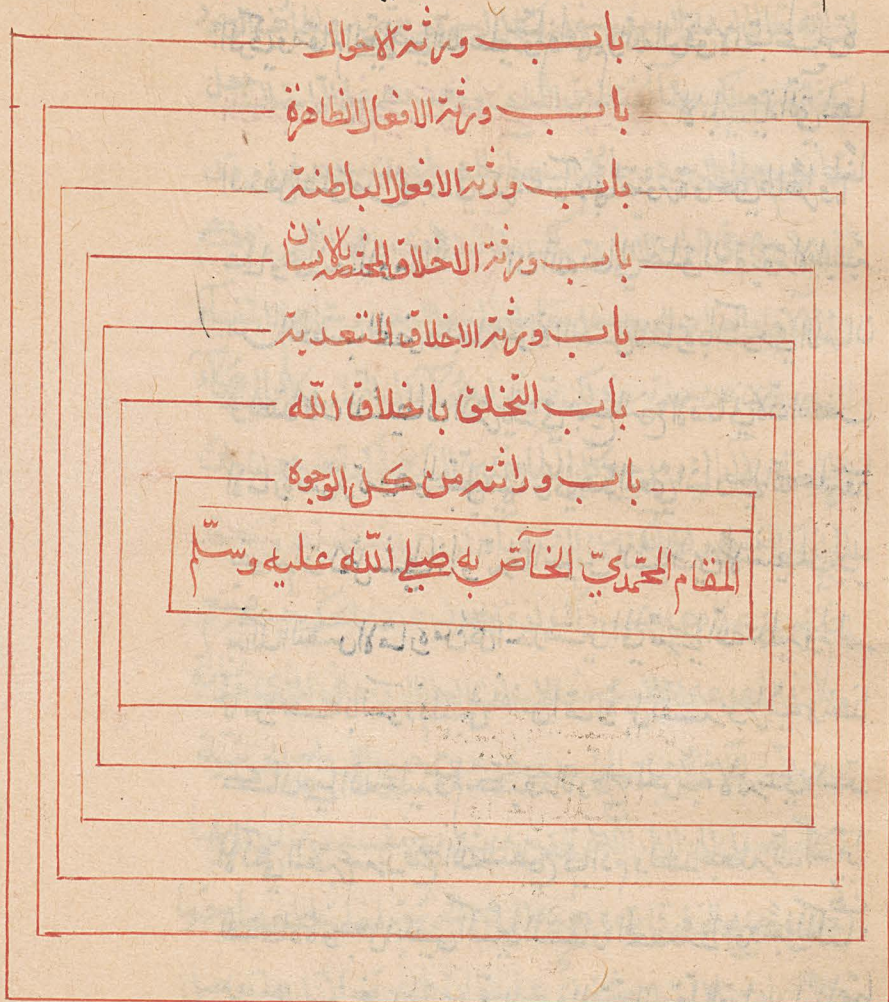 باب ورثة الاحوال
باب ورثة الافعال الظاهرة
باب ورثة الافعال الباطنة
باب ورثة الاخلاق المختصه بالانسان
باب ورثة الاخلاق المتعدية
باب التخلق باخلاق الله
باب وراثته من كل الوجوه
المقام المحمّديّ الخآصّ به صلي الله عليه وسلّم